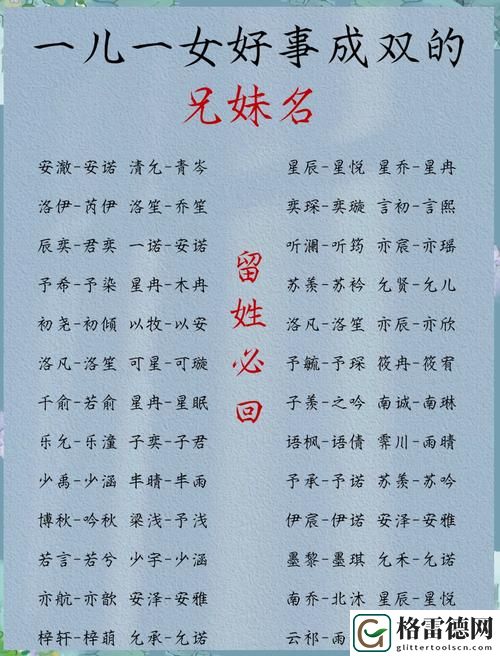 一儿一女好事成双的
兄妹名
安澈-安诺 清允-青岑
洛伊-芮伊 洛笙-乔笙
辰奕-君奕 一诺-安诺
予希-予染 星冉-木冉
初尧-初倾 以牧-以安
洛凡-洛笙 可星-可璇
千俞-若俞 星冉-星眠
乐允-乐潼 子奕-子君
少禹-少涵 半晴-半雨
博秋-吟秋 梁浅-予浅
若言-若兮 少宇-少涵
亦航-亦歆 安泽-安雅
梓轩-梓萌 允承-允诺
留姓必回
星辰-星悦 星乔-星冉
奕琛-奕璇 言初-言熙
听澜-听筠 亦宸-亦瑶
苏羡-苏衿 允贤-允儿
洛凡-洛笙 亦辰-亦欣
予毓-予琛 筱冉-筱宥
子羡-之吟 南诚-南琳
语枫-语倩 霁川-雨晴
予承-予诺 苏羡-苏吟
伊宸-伊诺 安泽-安雅
墨黎-墨琪 允禾-允诺
南乔-北沐 星辰-星悦
云祁-雨
格雷德网
glittertoolscn.com